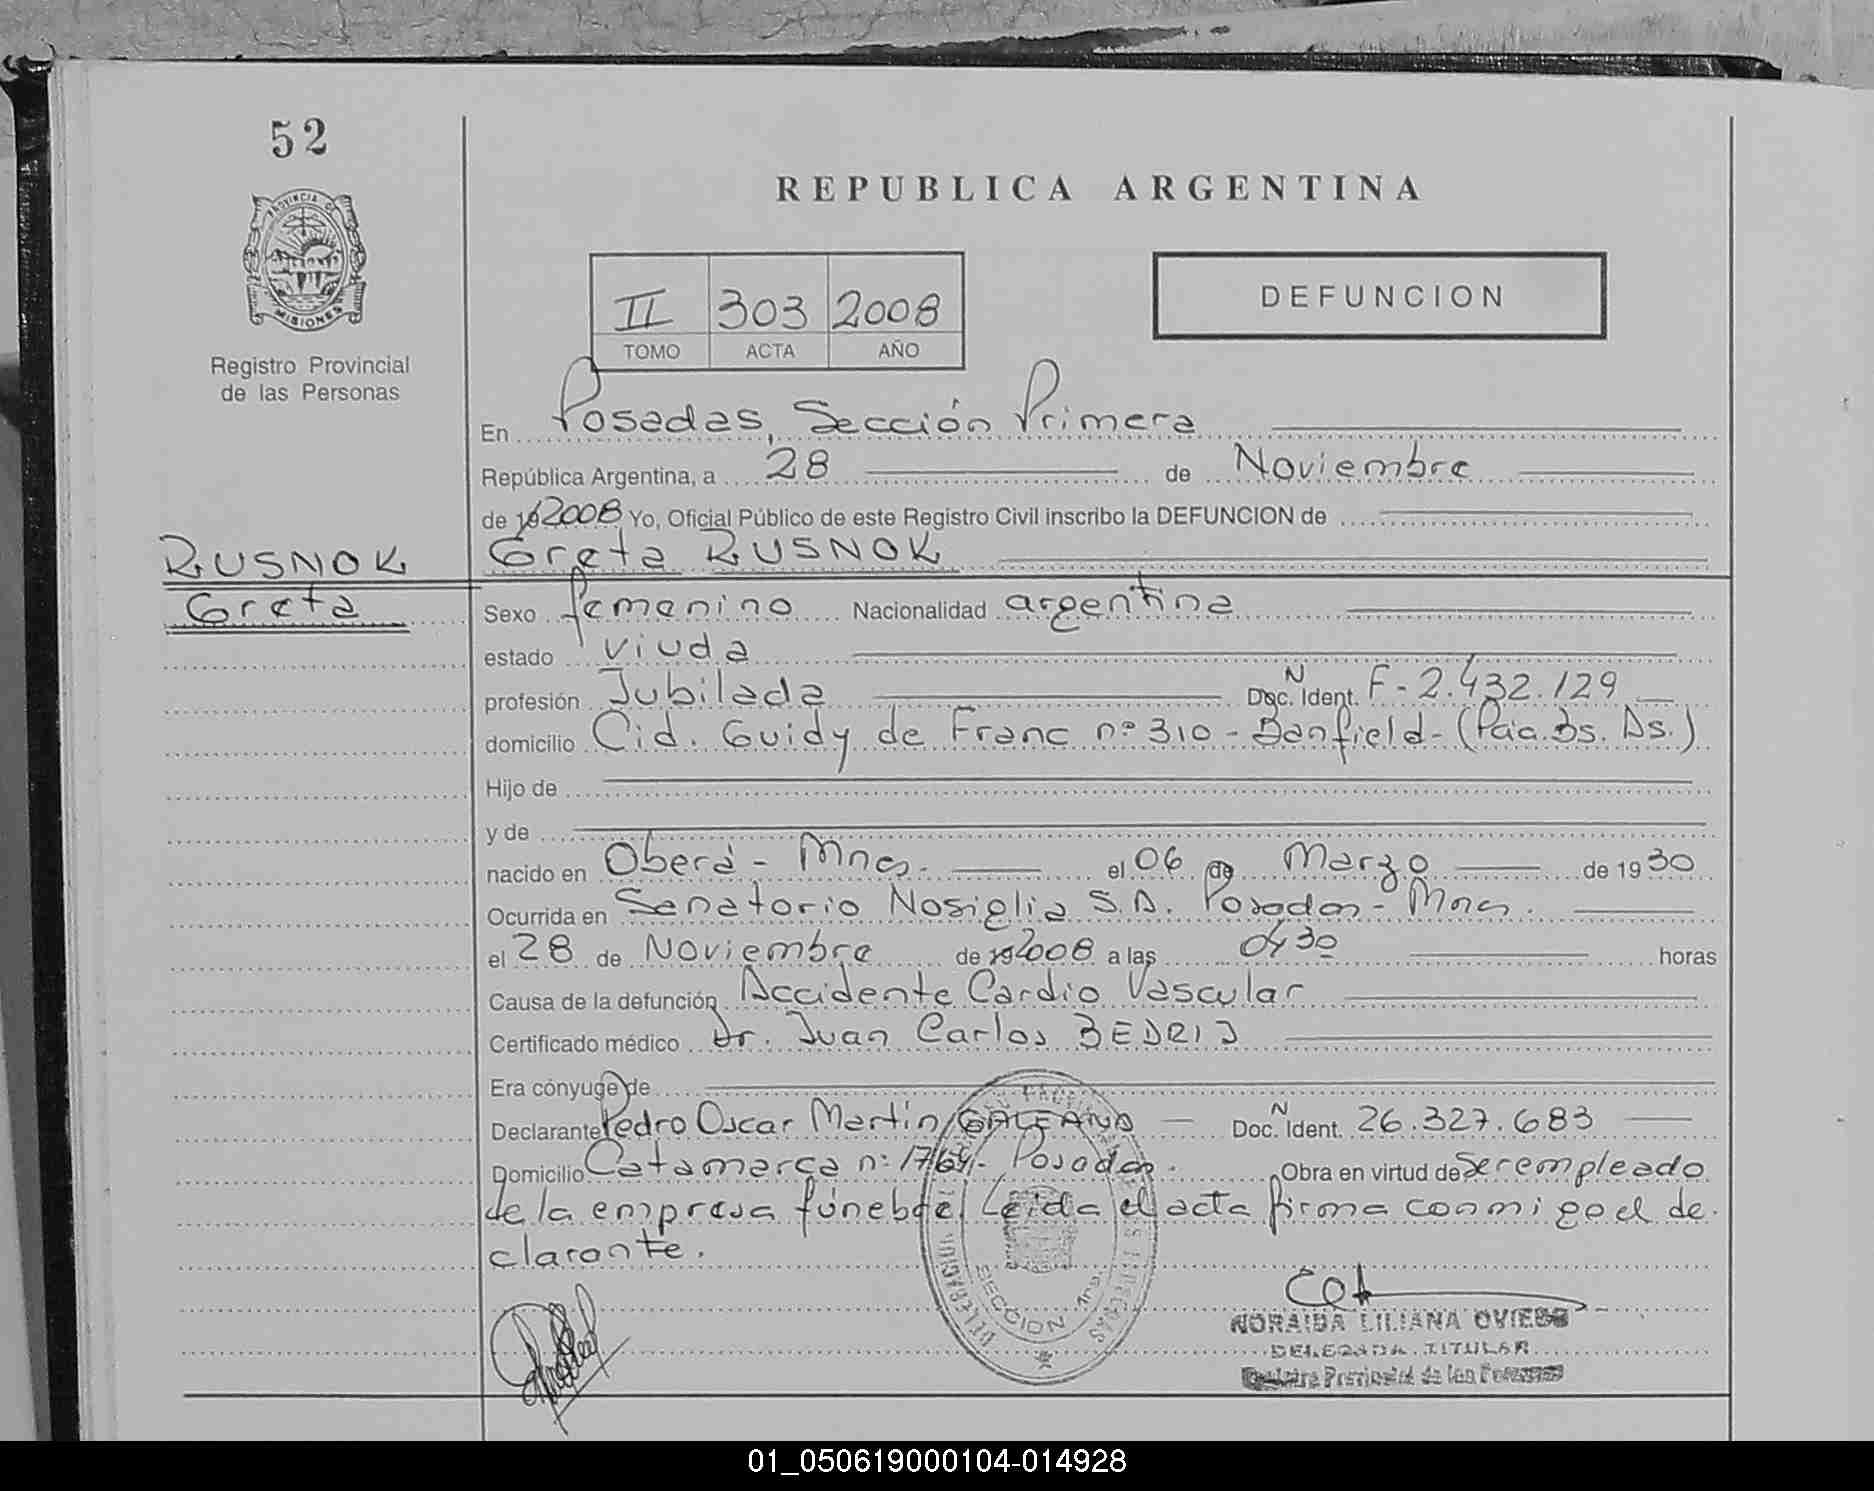 52
PROVINCIA DE
MISIONES
Registro Provincial
de las Personas
REPUBLICA ARGENTINA
II 303 2008
TOMO ACTA AÑO
DEFUNCION
En Posadas, Sección Primera
República Argentina, a 28 de Noviembre
de 192008 Yo, Oficial Público de este Registro Civil inscribo la DEFUNCION de
RUSNOK
Greta
Greta RUSNOK
Sexo femenino Nacionalidad argentina
estado viuda
profesión Jubilada Doc. Ident. N F-2.432.129
domicilio Cid. Guidy de Franc nº 310 - Banfield - (Pcia. Bs. As.)
Hijo de
y de
nacido en Oberá - Mnes. el 06 de Marzo de 1930
Ocurrida en Sanatorio Nosiglia S.A. Posadas - Mnes.
el 28 de Noviembre de 192008 a las 0430 horas
Causa de la defunción Accidente Cardio Vascular
Certificado médico Dr. Juan Carlos BEDRIJ
Era cónyuge de
Declarante Pedro Oscar Martin GALEANO Doc. Ident. N 26.327.683
Domicilio Catamarca nº 1764 - Posadas. Obra en virtud de Ser empleado
de la empresa fúnebre. Leida el acta firma conmigo el de-
clarante.
SECCION 1ra.
NORAIDA LILIANA OVIEDO
DELEGADA TITULAR
Registro Provincial de las Personas
01_050619000104-014928